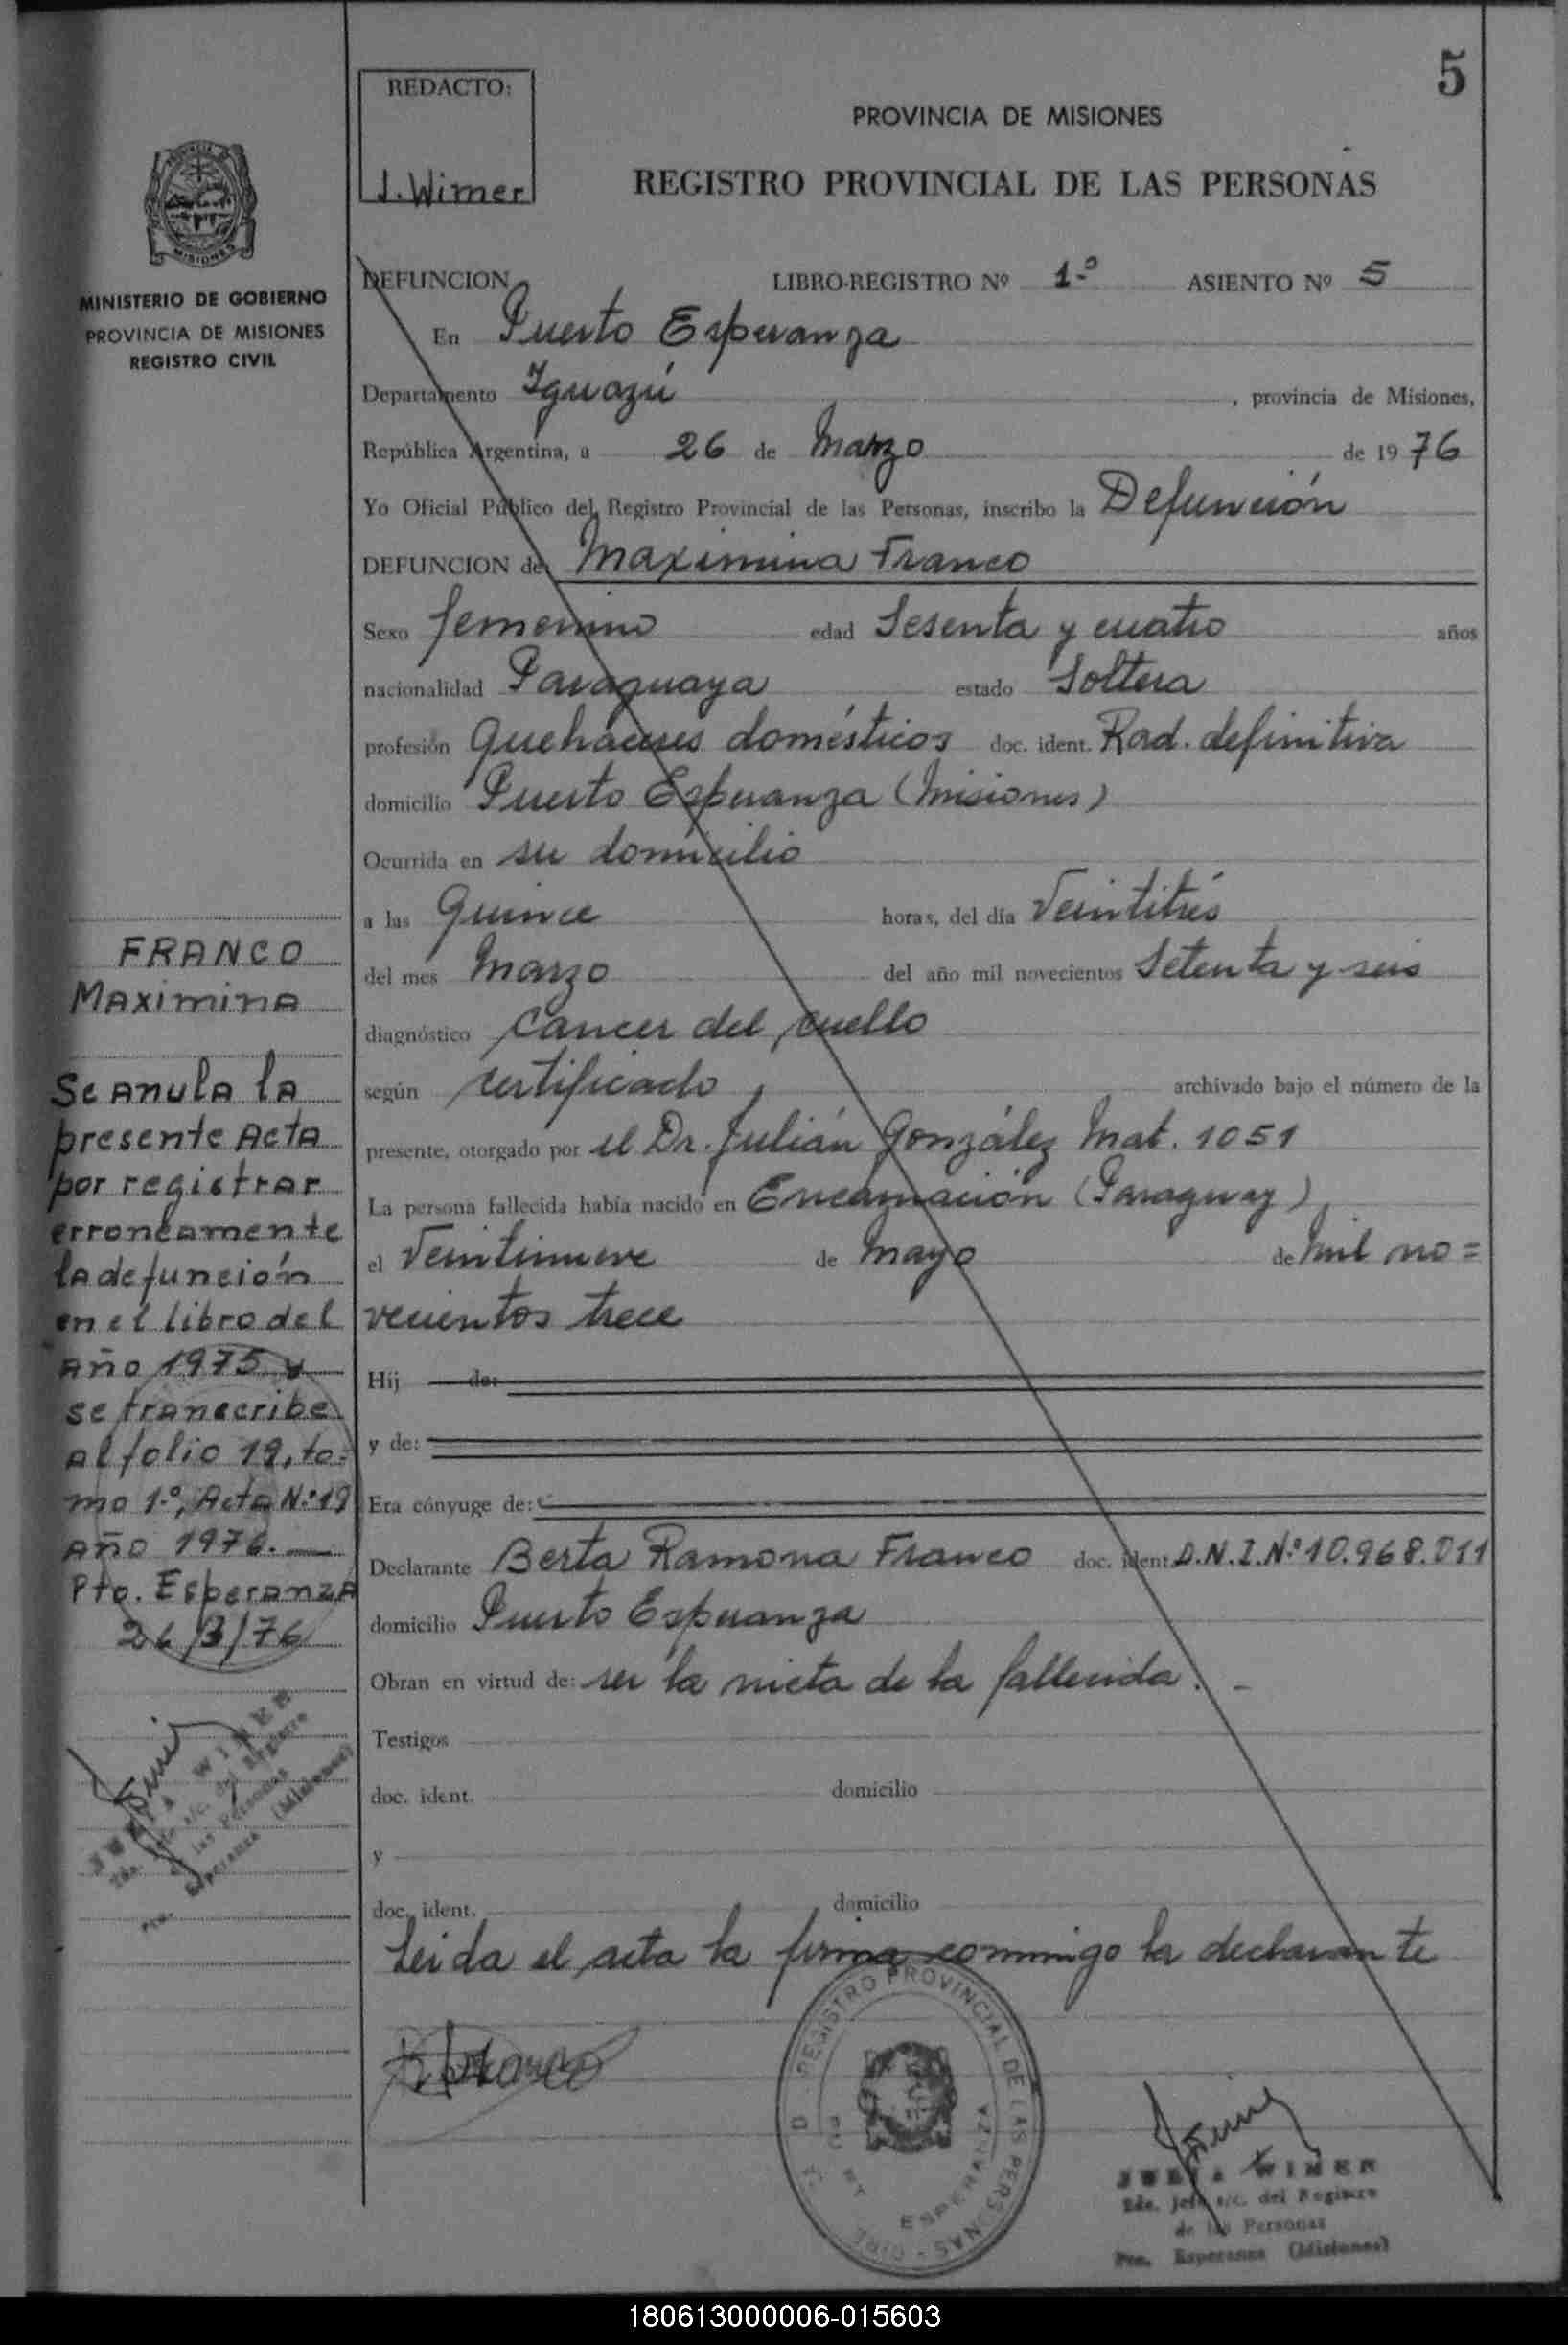 5
REDACTO:
J. Wimer
PROVINCIA DE MISIONES
REGISTRO PROVINCIAL DE LAS PERSONAS
MISIONES
MINISTERIO DE GOBIERNO
PROVINCIA DE MISIONES
REGISTRO CIVIL
DEFUNCION LIBRO-REGISTRO Nº 1-º ASIENTO Nº 5
En Puerto Esperanza
Departamento Iguazú, provincia de Misiones,
República Argentina, a 26 de Marzo de 1976
Yo Oficial Público del Registro Provincial de las Personas, inscribo la Defunción
DEFUNCION de Maximina Franco
Sexo femenino edad Sesenta y cuatro años
nacionalidad Paraguaya estado Soltera
profesión Quehaceres domésticos doc. ident. Rad. definitiva
domicilio Puerto Esperanza (Misiones)
Ocurrida en su domicilio
a las Quince horas, del día Veintitrés
del mes Marzo del año mil novecientos Setenta y seis
diagnóstico Cancer del cuello
según certificado, archivado bajo el número de la
presente, otorgado por el Dr. Julián González Mat. 1051
La persona fallecida había nacido en Encarnación (Paraguay),
el Veintinueve de Mayo de Mil no=
vecientos trece
Hij de:
y de:
Era cónyuge de:
Declarante Berta Ramona Franco doc. ident. D.N.I.Nº 10.968.011
domicilio Puerto Esperanza
Obran en virtud de: ser la nieta de la fallecida. -
Testigos
doc. ident. domicilio
y
doc. ident. domicilio
Leida el acta la firma conmigo la declarante
FRANCO
MAXIMINA
Se anula la
presente Acta
por registrar
erroneamente
la defunción
en el libro del
año 1975 y
se transcribe
al folio 19, to-
mo 1-º, Acta N.º 19
año 1976. —
Pto. Esperanza
26/3/76
JULIA WIMER
2da. Jefe a/c. del Registro
de las Personas
Pto. Esperanza (Misiones)
REGISTRO PROVINCIAL DE LAS PERSONAS
ESPERANZA
JULIA WIMER
2da. Jefe a/c. del Registro
de las Personas
Pto. Esperanza (Misiones)
180613000006-015603